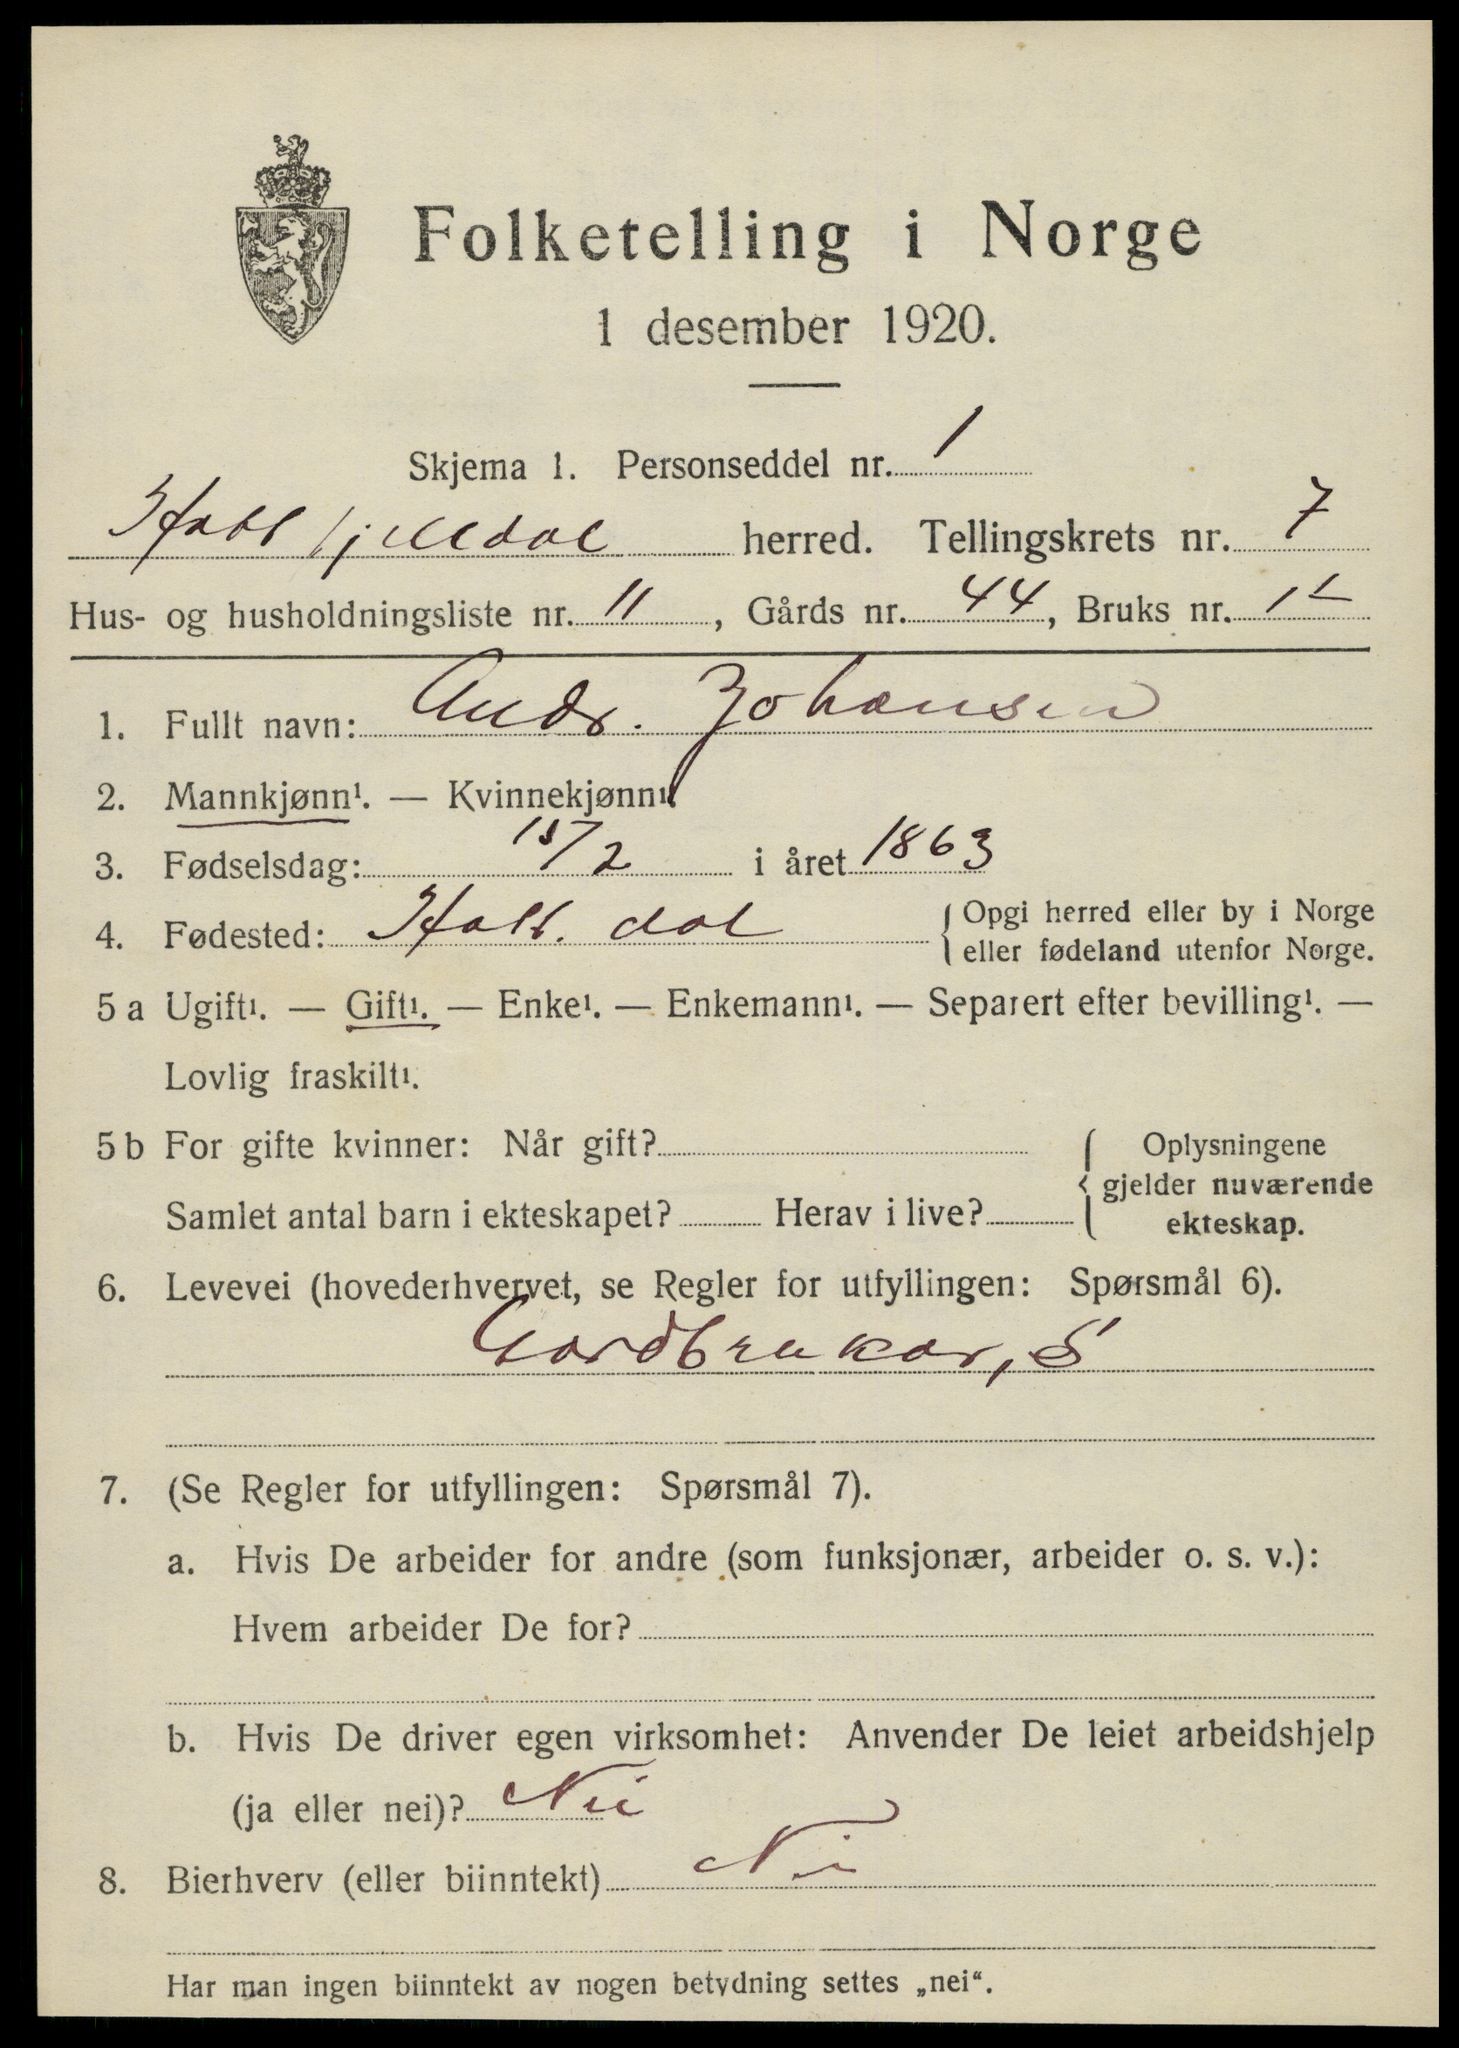 Folketelling i Norge
1 desember 1920.
Skjema 1. Personseddel nr. 1
Hattfjelldal herred. Tellingskrets nr. 7
Hus- og husholdningsliste nr. 11, Gårds nr. 44, Bruks nr. 1
1. Fullt navn: Andr. Johansen
2. Mannkjønn¹. — Kvinnekjønn¹.
3. Fødselsdag: 15/2 i året 1863
4. Fødested: Hatf. dal { Opgi herred eller by i Norge
eller fødeland utenfor Norge.
5 a Ugift¹. — Gift¹. — Enke¹. — Enkemann¹. — Separert efter bevilling¹. —
Lovlig fraskilt¹.
5 b For gifte kvinner: Når gift?
Samlet antal barn i ekteskapet? Herav i live?
{ Oplysningene
gjelder nuværende
ekteskap.
6. Levevei (hovederhvervet, se Regler for utfyllingen: Spørsmål 6).
Gardbrukar, S
7. (Se Regler for utfyllingen: Spørsmål 7).
a. Hvis De arbeider for andre (som funksjonær, arbeider o. s. v.):
Hvem arbeider De for?
b. Hvis De driver egen virksomhet: Anvender De leiet arbeidshjelp
(ja eller nei)? Nei
8. Bierhverv (eller biinntekt) Nei
Har man ingen biinntekt av nogen betydning settes „nei“.